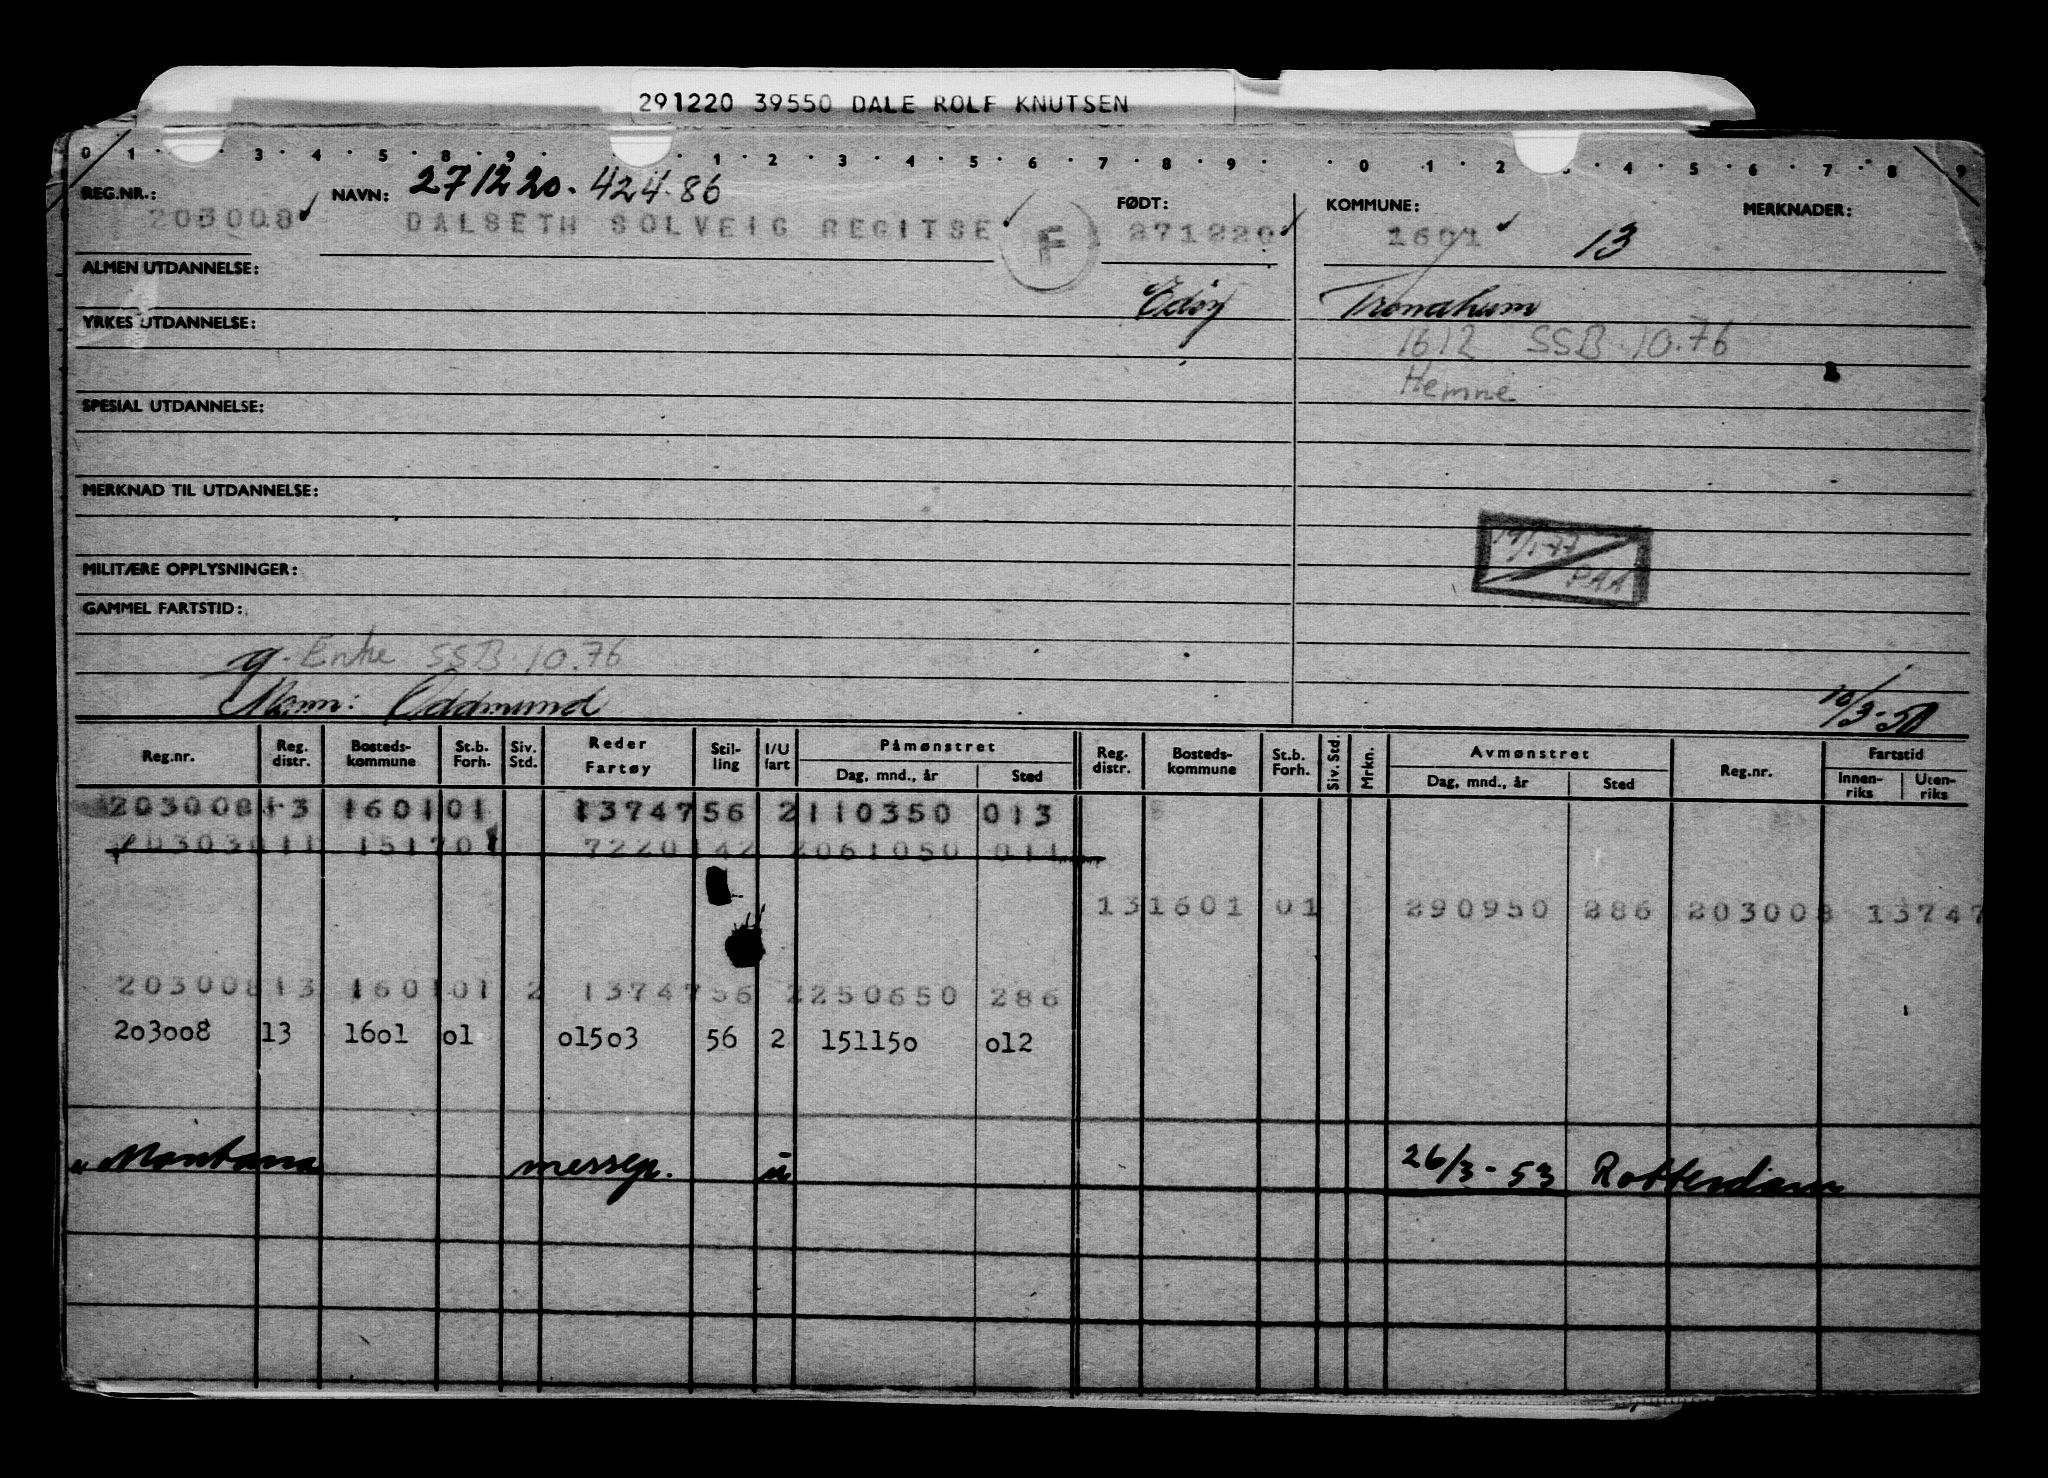 291220 39550 DALE ROLF KNUTSEN
0 1 · 3 · 4 · 5 · 8 · 9 · 1 · 2 · 3 · 4 · 5 · 6 · 7 · 8 · 9 · 0 · 1 · 2 · 4 · 5 · 6 · 7 · 8 9
REG.NR.: NAVN: 271220. 424.86 FØDT: KOMMUNE: MERKNADER:
203008 DALSETH SOLVEIG REGITSE F 271220 1601 13
ALMEN UTDANNELSE:
Edøy Trondheim
YRKES UTDANNELSE:
1612 SSB.10.76
Hemne
SPESIAL UTDANNELSE:
MERKNAD TIL UTDANNELSE:
PAA
MILITÆRE OPPLYSNINGER:
GAMMEL FARTSTID:
g. Enke SSB.10.76
Mann: Oddmund
10/3-50
Reg.nr. Reg. distr. Bosteds-kommune St.b. Forh. Siv. Std. Reder Fartøy Stil-ling I/U fart Påmønstret Dag, mnd., år Sted Reg. distr. Bosteds-kommune St.b. Forh. Siv. Std. Mrkn. Avmønstret Dag, mnd., år Sted Reg.nr. Fartstid Innen-riks Uten-riks
203008 13 1601 01 13747 56 2 110350 013
203030 11 1517 01 7220 142 2 061050 011
13 1601 01 290950 286 203008 13747
203008 13 1601 01 2 13747 56 2 250650 286
203008 13 1601 01 01503 56 2 151150 012
"Montana messep. u 26/3-53 Rotterdam